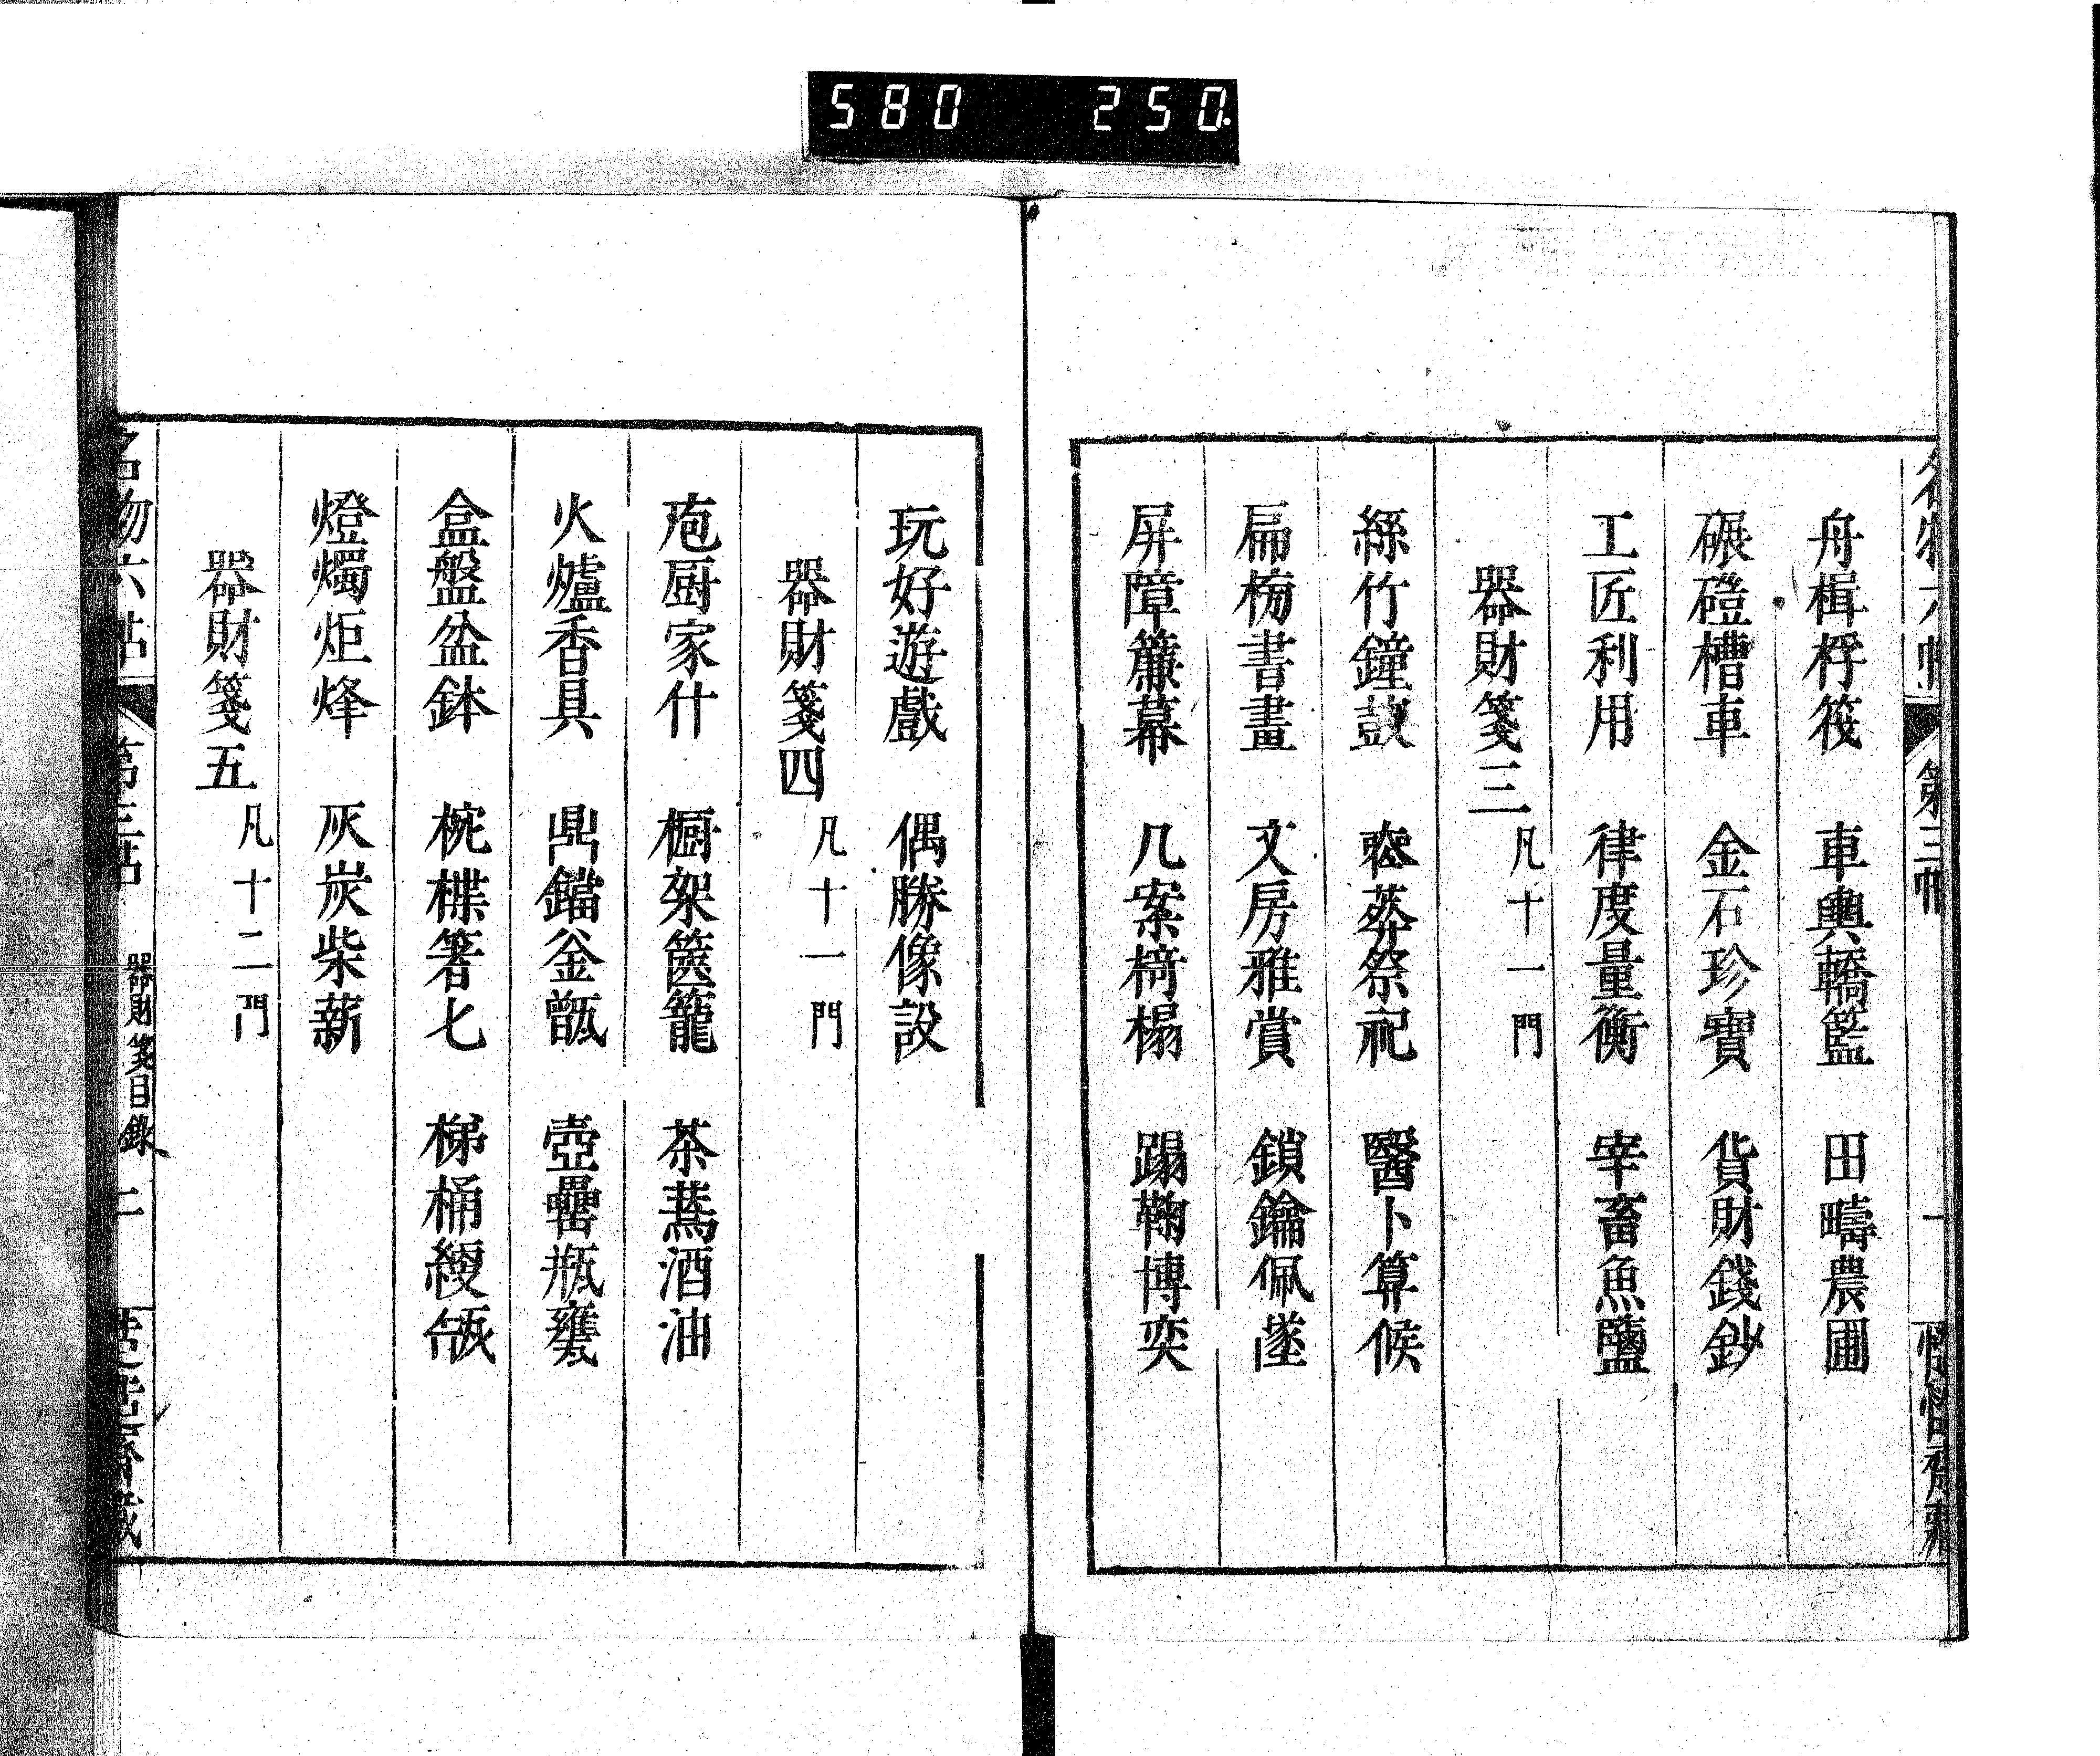 580 250.
舟楫桴筏 車輿轎籃 田疇農圃
碾磑槽車 金石珍寶 貨財錢鈔
工匠利用 律度量衡 宰畜魚鹽
器財箋三 凡十一門
絲竹鐘鼓 喪葬祭祀 醫卜算候
扁榜書畫 文房雅賞 鎖鑰佩
屏障簾幕 几案椅榻 蹋鞠博奕
玩好遊戲 偶勝像設
器財箋四 凡十一門
庖厨家什 橱架篋籠 茶蔫酒油
火爐香具 鼎鐺釜甑 壺罍瓶甕
盒盤盆鉢 椀楪箸匕 梯桶綆瓴
燈燭炬烽 灰炭柴薪
器財箋五 凡十二門
名物六帖 第三帖 器財箋目錄 二